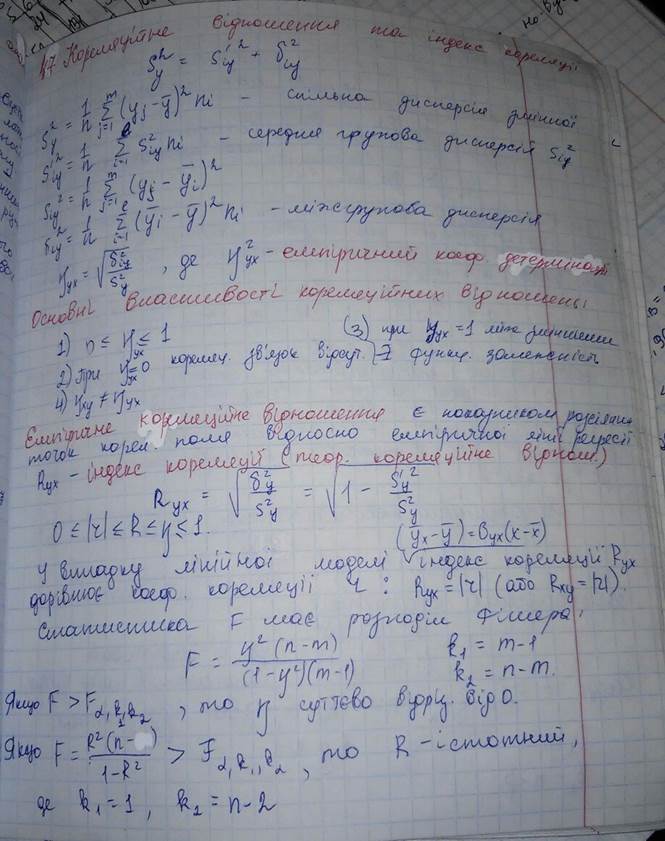 §7 Кореляційне відношення та індекс кореляції
S_y² = S'_iy² + δ_iy²
S_y² = 1/n Σ_{j=1}^m (y_j - ȳ)² n_i - спільна дисперсія змінної
S'_iy² = 1/n Σ_{i=1}^e S_iy² n_i - середня групова дисперсія S_iy²
S_iy² = 1/n Σ_{j=1}^m (y_j - ȳ_i)²
δ_iy² = 1/n Σ_{i=1}^e (ȳ_i - ȳ)² n_i - міжгрупова дисперсія
η_yx = √(δ_iy²/S_y²), де η²_yx - емпіричний коеф. детермінац
Основні властивості кореляційних відношень
1) 0 ≤ η_yx ≤ 1 (3) при η_yx = 1 між змінними
2) При η_yx = 0 кореляц. зв'язок відсут. ∃ функц. залежність
4) η_xy ≠ η_yx
Емпіричне кореляційне відношення є показником розсіян
точок корел. поля відносно емпіричної лінії регресії
R_yx - індекс кореляцій (теор. кореляційне віднош.)
R_yx = √(δ_y²/S_y²) = √(1 - S'_y²/S_y²)
0 ≤ |r| ≤ R ≤ η ≤ 1. (ȳ_x - ȳ) = b_yx(x - x̄)
У випадку лінійної моделі індекс кореляцій R_yx
дорівнює коеф. кореляції r : R_yx = |r| (або R_xy = |r|).
Статистика F має розподіл Фішера,
F = η²(n-m)/((1-η²)(m-1)) k₁ = m-1
k₂ = n-m.
Якщо F > F_α,k₁,k₂, то η суттєво відріз. від 0.
Якщо F = R²(n- )/(1-R²) > F_α,k₁,k₂, то R - істотний,
де k₁ = 1, k₂ = n-2